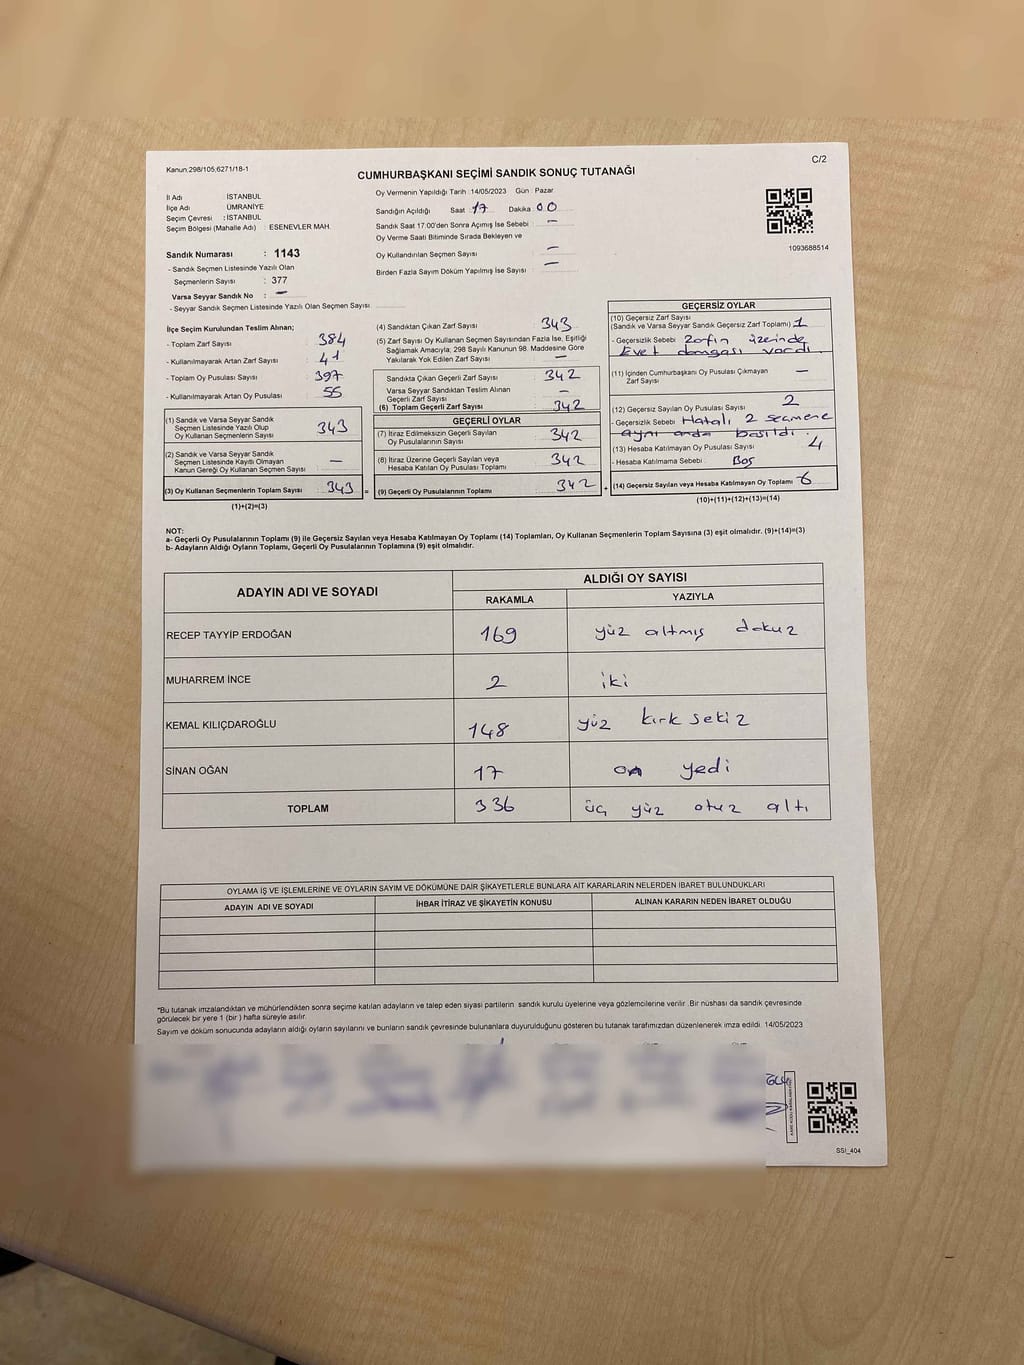 Kanun:298/105;6271/18-1
C/2
CUMHURBAŞKANI SEÇİMİ SANDIK SONUÇ TUTANAĞI
İl Adı : İSTANBUL
İlçe Adı : ÜMRANİYE
Seçim Çevresi : İSTANBUL
Seçim Bölgesi (Mahalle Adı) : ESENEVLER MAH.
Sandık Numarası : 1143
- Sandık Seçmen Listesinde Yazılı Olan
Seçmenlerin Sayısı : 377
Varsa Seyyar Sandık No : –
- Seyyar Sandık Seçmen Listesinde Yazılı Olan Seçmen Sayısı
Oy Vermenin Yapıldığı Tarih :14/05/2023 Gün : Pazar
Sandığın Açıldığı Saat 17 Dakika 00
Sandık Saat 17.00'den Sonra Açımış İse Sebebi –
Oy Verme Saati Bitiminde Sırada Bekleyen ve
Oy Kullandırılan Seçmen Sayısı –
Birden Fazla Sayım Döküm Yapılmış İse Sayısı –
1093688514
İlçe Seçim Kurulundan Teslim Alınan;
- Toplam Zarf Sayısı 384
- Kullanılmayarak Artan Zarf Sayısı 41
- Toplam Oy Pusulası Sayısı 397
- Kullanılmayarak Artan Oy Pusulası 55
(1) Sandık ve Varsa Seyyar Sandık
Seçmen Listesinde Yazılı Olup
Oy Kullanan Seçmenlerin Sayısı 343
(2) Sandık ve Varsa Seyyar Sandık
Seçmen Listesinde Kayıtlı Olmayan
Kanun Gereği Oy Kullanan Seçmen Sayısı –
(3) Oy Kullanan Seçmenlerin Toplam Sayısı 343 =
(1)+(2)=(3)
(4) Sandıktan Çıkan Zarf Sayısı 343
(5) Zarf Sayısı Oy Kullanan Seçmen Sayısından Fazla İse, Eşitliği
Sağlamak Amacıyla; 298 Sayılı Kanunun 98. Maddesine Göre
Yakılarak Yok Edilen Zarf Sayısı –
Sandıkta Çıkan Geçerli Zarf Sayısı 342
Varsa Seyyar Sandıktan Teslim Alınan
Geçerli Zarf Sayısı –
(6) Toplam Geçerli Zarf Sayısı 342
GEÇERLİ OYLAR
(7) İtiraz Edilmeksizin Geçerli Sayılan
Oy Pusulalarının Sayısı 342
(8) İtiraz Üzerine Geçerli Sayılan veya
Hesaba Katılan Oy Pusulası Toplamı 342
(9) Geçerli Oy Pusulalarının Toplamı 342 +
GEÇERSİZ OYLAR
(10) Geçersiz Zarf Sayısı
(Sandık ve Varsa Seyyar Sandık Geçersiz Zarf Toplamı) 1
- Geçersizlik Sebebi Zarfın üzerinde
Evet damgası vardı.
(11) İçinden Cumhurbaşkanı Oy Pusulası Çıkmayan
Zarf Sayısı –
(12) Geçersiz Sayılan Oy Pusulası Sayısı 2
- Geçersizlik Sebebi Hatalı 2 seçmene
aynı anda basıldı.
(13) Hesaba Katılmayan Oy Pusulası Sayısı 4
- Hesaba Katılmama Sebebi Boş
(14) Geçersiz Sayılan veya Hesaba Katılmayan Oy Toplamı 6
(10)+(11)+(12)+(13)=(14)
NOT:
a- Geçerli Oy Pusulalarının Toplamı (9) ile Geçersiz Sayılan veya Hesaba Katılmayan Oy Toplamı (14) Toplamları, Oy Kullanan Seçmenlerin Toplam Sayısına (3) eşit olmalıdır. (9)+(14)=(3)
b- Adayların Aldığı Oyların Toplamı, Geçerli Oy Pusulalarının Toplamına (9) eşit olmalıdır.
ADAYIN ADI VE SOYADI ALDIĞI OY SAYISI
RAKAMLA YAZIYLA
RECEP TAYYİP ERDOĞAN 169 yüz altmış dokuz
MUHARREM İNCE 2 iki
KEMAL KILIÇDAROĞLU 148 yüz kırk sekiz
SİNAN OĞAN 17 on yedi
TOPLAM 336 üç yüz otuz altı
OYLAMA İŞ VE İŞLEMLERİNE VE OYLARIN SAYIM VE DÖKÜMÜNE DAİR ŞİKAYETLERLE BUNLARA AİT KARARLARIN NELERDEN İBARET BULUNDUKLARI
ADAYIN ADI VE SOYADI İHBAR İTİRAZ VE ŞİKAYETİN KONUSU ALINAN KARARIN NEDEN İBARET OLDUĞU
*Bu tutanak imzalandıktan ve mühürlendikten sonra seçime katılan adayların ve talep eden siyasi partilerin sandık kurulu üyelerine veya gözlemcilerine verilir .Bir nüshası da sandık çevresinde
görülecek bir yere 1 (bir ) hafta süreyle asılır.
Sayım ve döküm sonucunda adayların aldığı oyların sayılarını ve bunların sandık çevresinde bulunanlara duyurulduğunu gösteren bu tutanak tarafımızdan düzenlenerek imza edildi. 14/05/2023
SSI_404